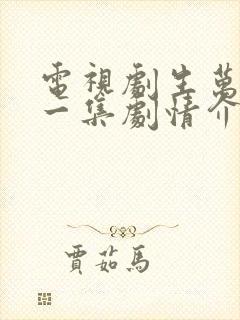 電視劇生萬
一集劇情介
賈茹馬